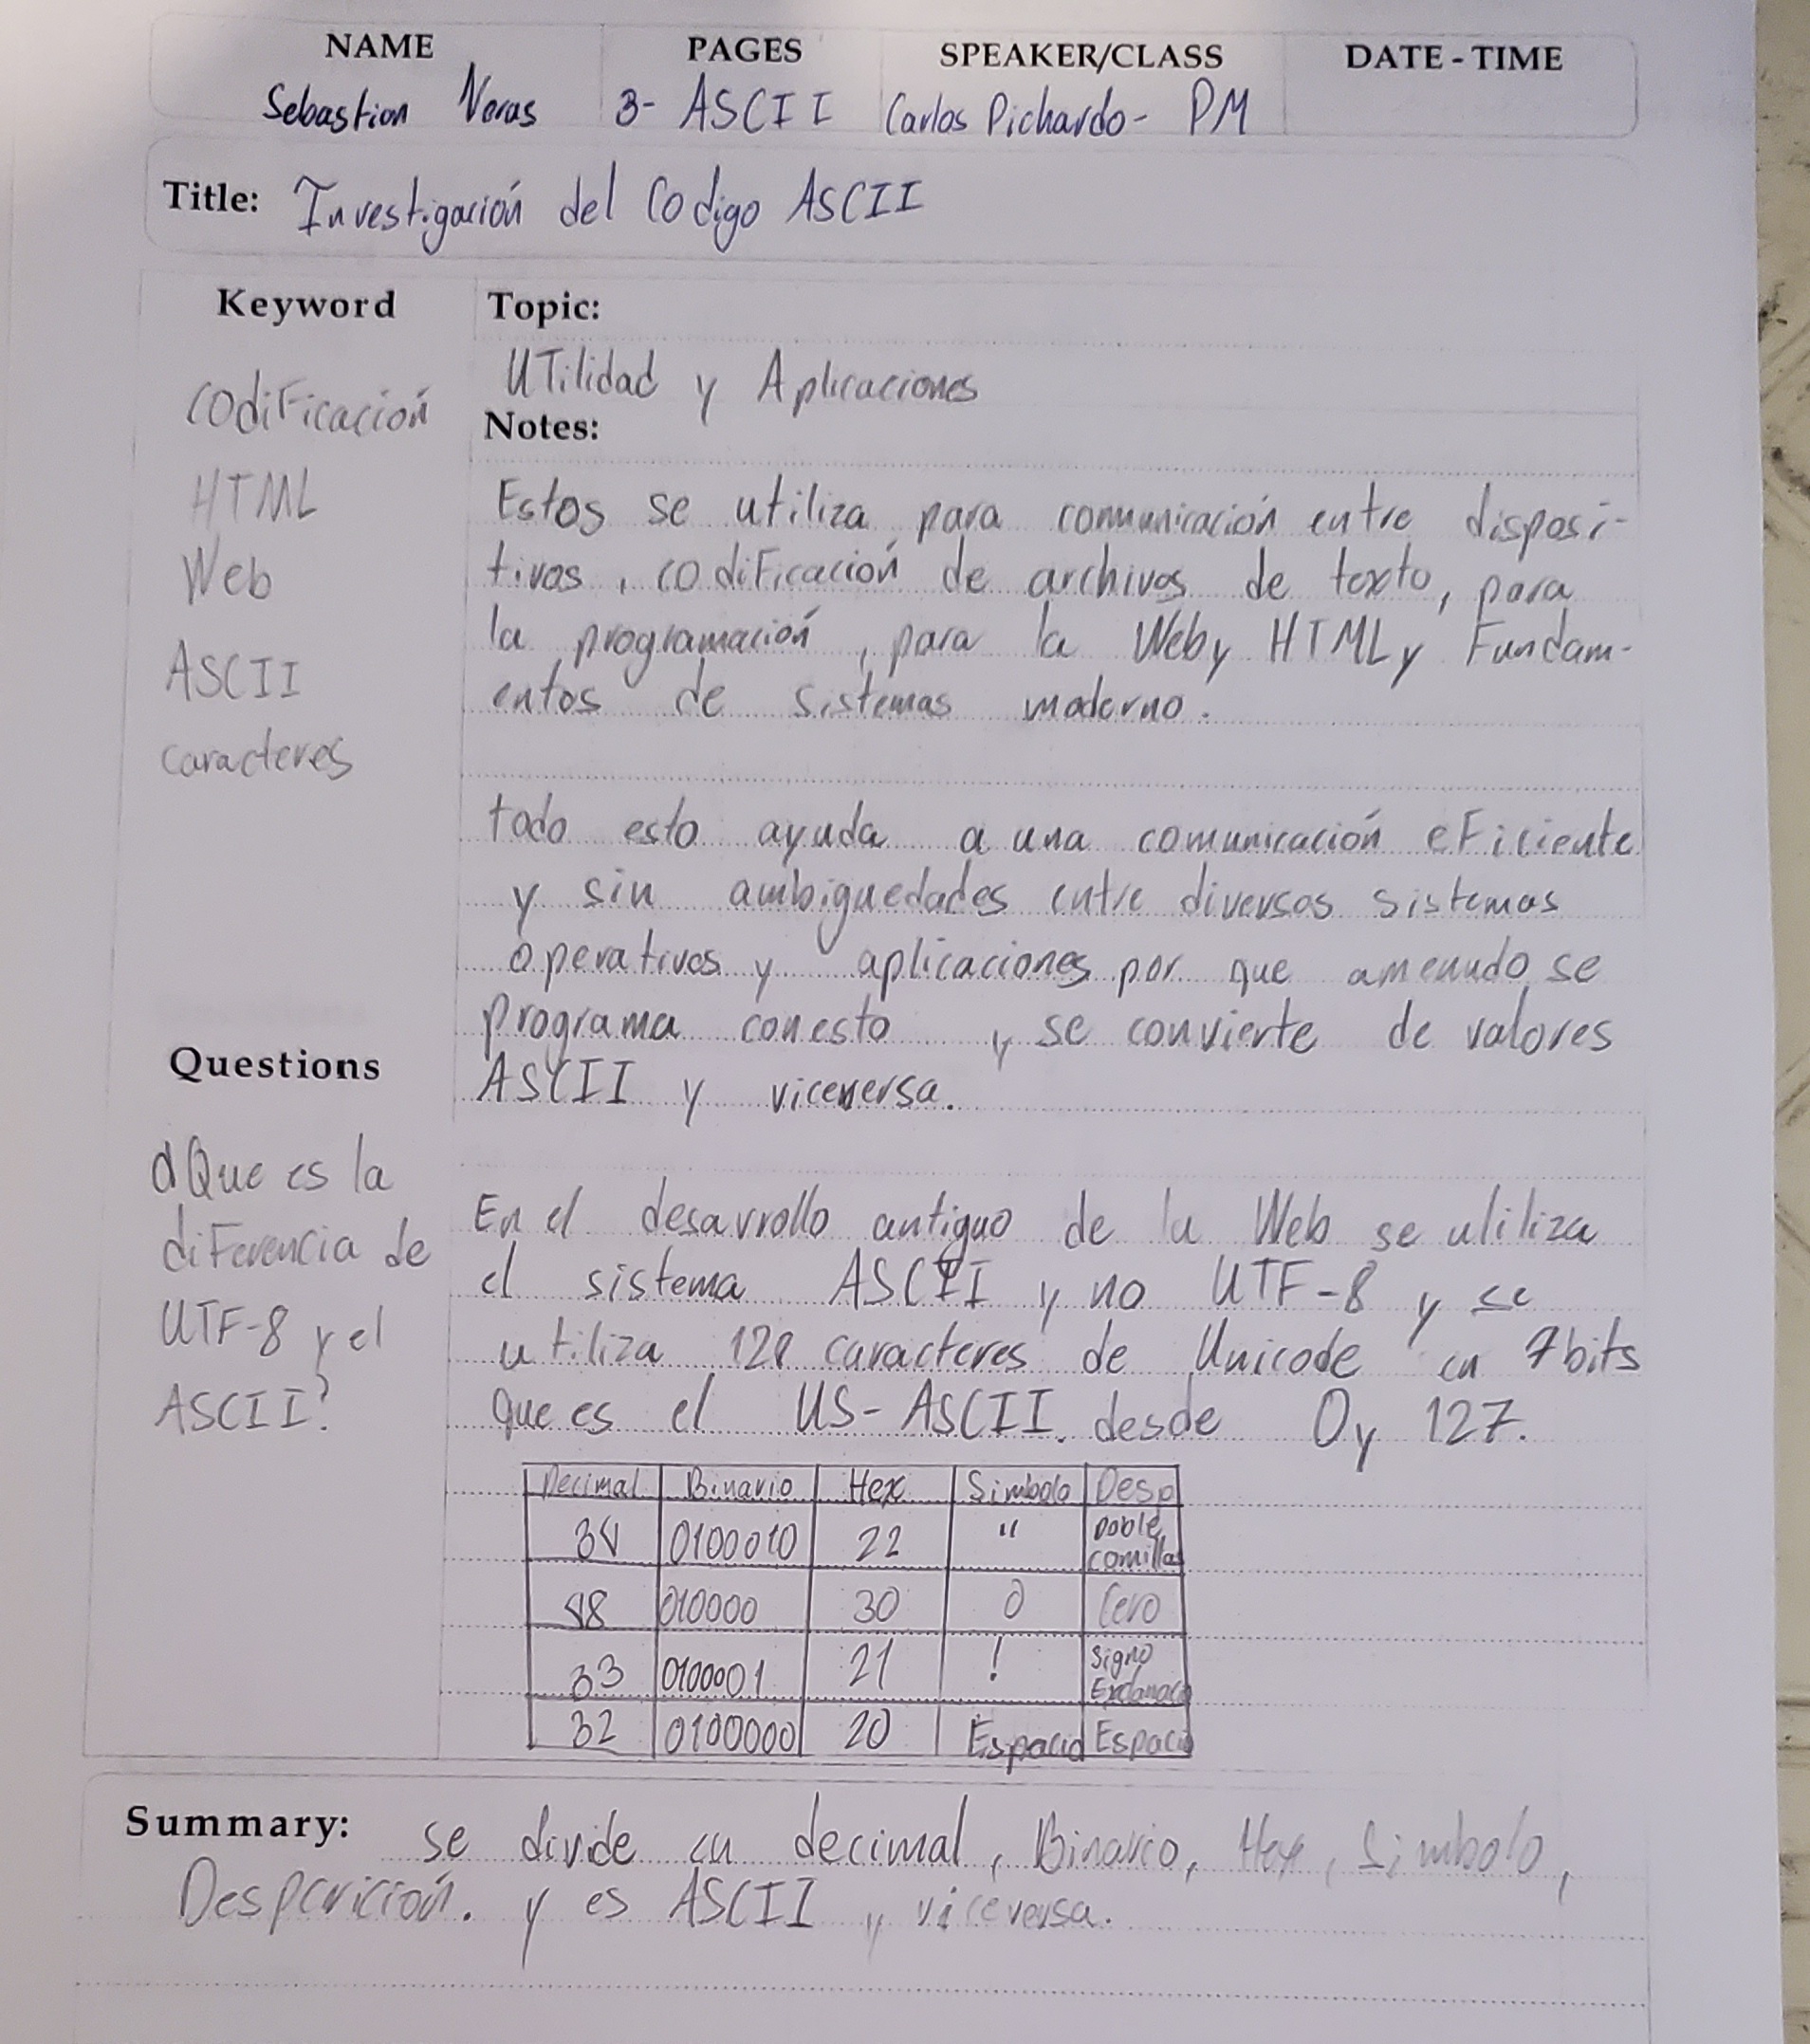 NAME PAGES SPEAKER/CLASS DATE-TIME
Sebastian Veras 3- ASCII Carlos Pichardo- PM
Title: Investigación del Codigo ASCII
Keyword
codificación
HTML
Web
ASCII
caracteres
Topic:
UTilidad y Aplicaciones
Notes:
Estos se utiliza para comunicación entre disposi-
tivos, codificación de archivos de texto, para
la programación, para la Web y HTML y Fundam-
entos de sistemas moderno.
todo esto ayuda a una comunicación eficiente
y sin ambiguedades entre diversos sistemas
operativos y aplicaciones por que amenudo se
programa con esto y se convierte de valores
ASCII y viceversa.
Questions
¿Que es la
diferencia de
UTF-8 y el
ASCII?
En el desarrollo antiguo de la Web se uliliza
el sistema ASCII y no UTF-8 y se
utiliza 128 caracteres de Unicode en 7bits
que es el US-ASCII. desde 0 y 127.
Decimal Binario Hex Simbolo Desp
34 0100010 22 " Doble comillas
48 010000 30 0 Cero
33 0100001 21 ! signo
32 0100000 20 Espacio Espacio
Summary: se divide en decimal, Binario, Hex, Simbolo,
Desparición. y es ASCII y viceversa.